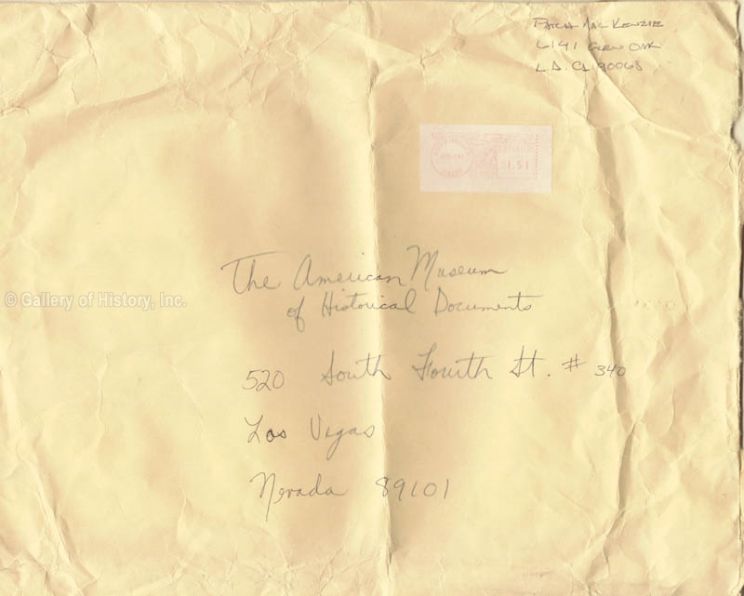 Patch MacKenzie
6141 Glen Oak
L.A. CA. 90068
$1.51
The American Museum
of Historical Documents
© Gallery of History, Inc.
520 South Fourth St. # 340
Las Vegas
Nevada 89101